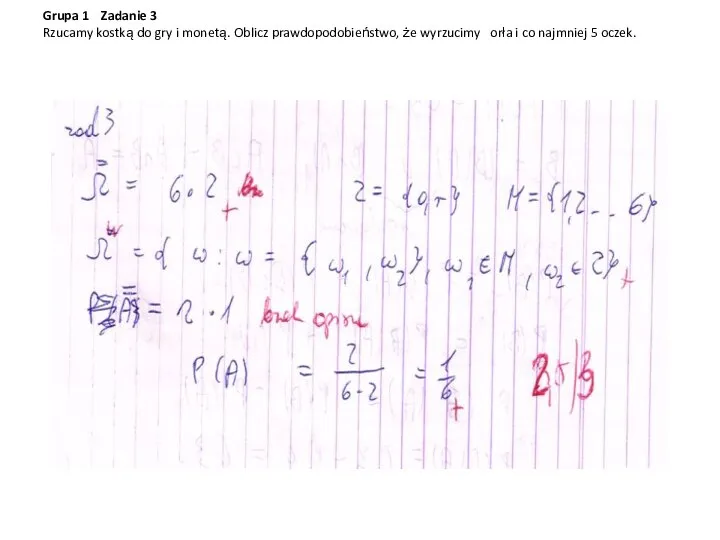 Grupa 1 Zadanie 3
Rzucamy kostką do gry i monetą. Oblicz prawdopodobieństwo, że wyrzucimy orła i co najmniej 5 oczek.
zad 3
Ω̿ = 6·2 + Z = {o,r} M = {1,2 .. 6}
Ω = { ω : ω = { ω₁ , ω₂ }, ω₁ ∈ M , ω₂ ∈ Z } +
A̿ = 2 · 1 brak opisu
P (A) = 2/6·2 = 1/6 +